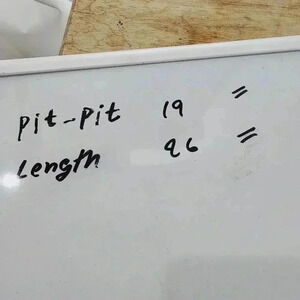 Pit-Pit 19 "
Length 26 "